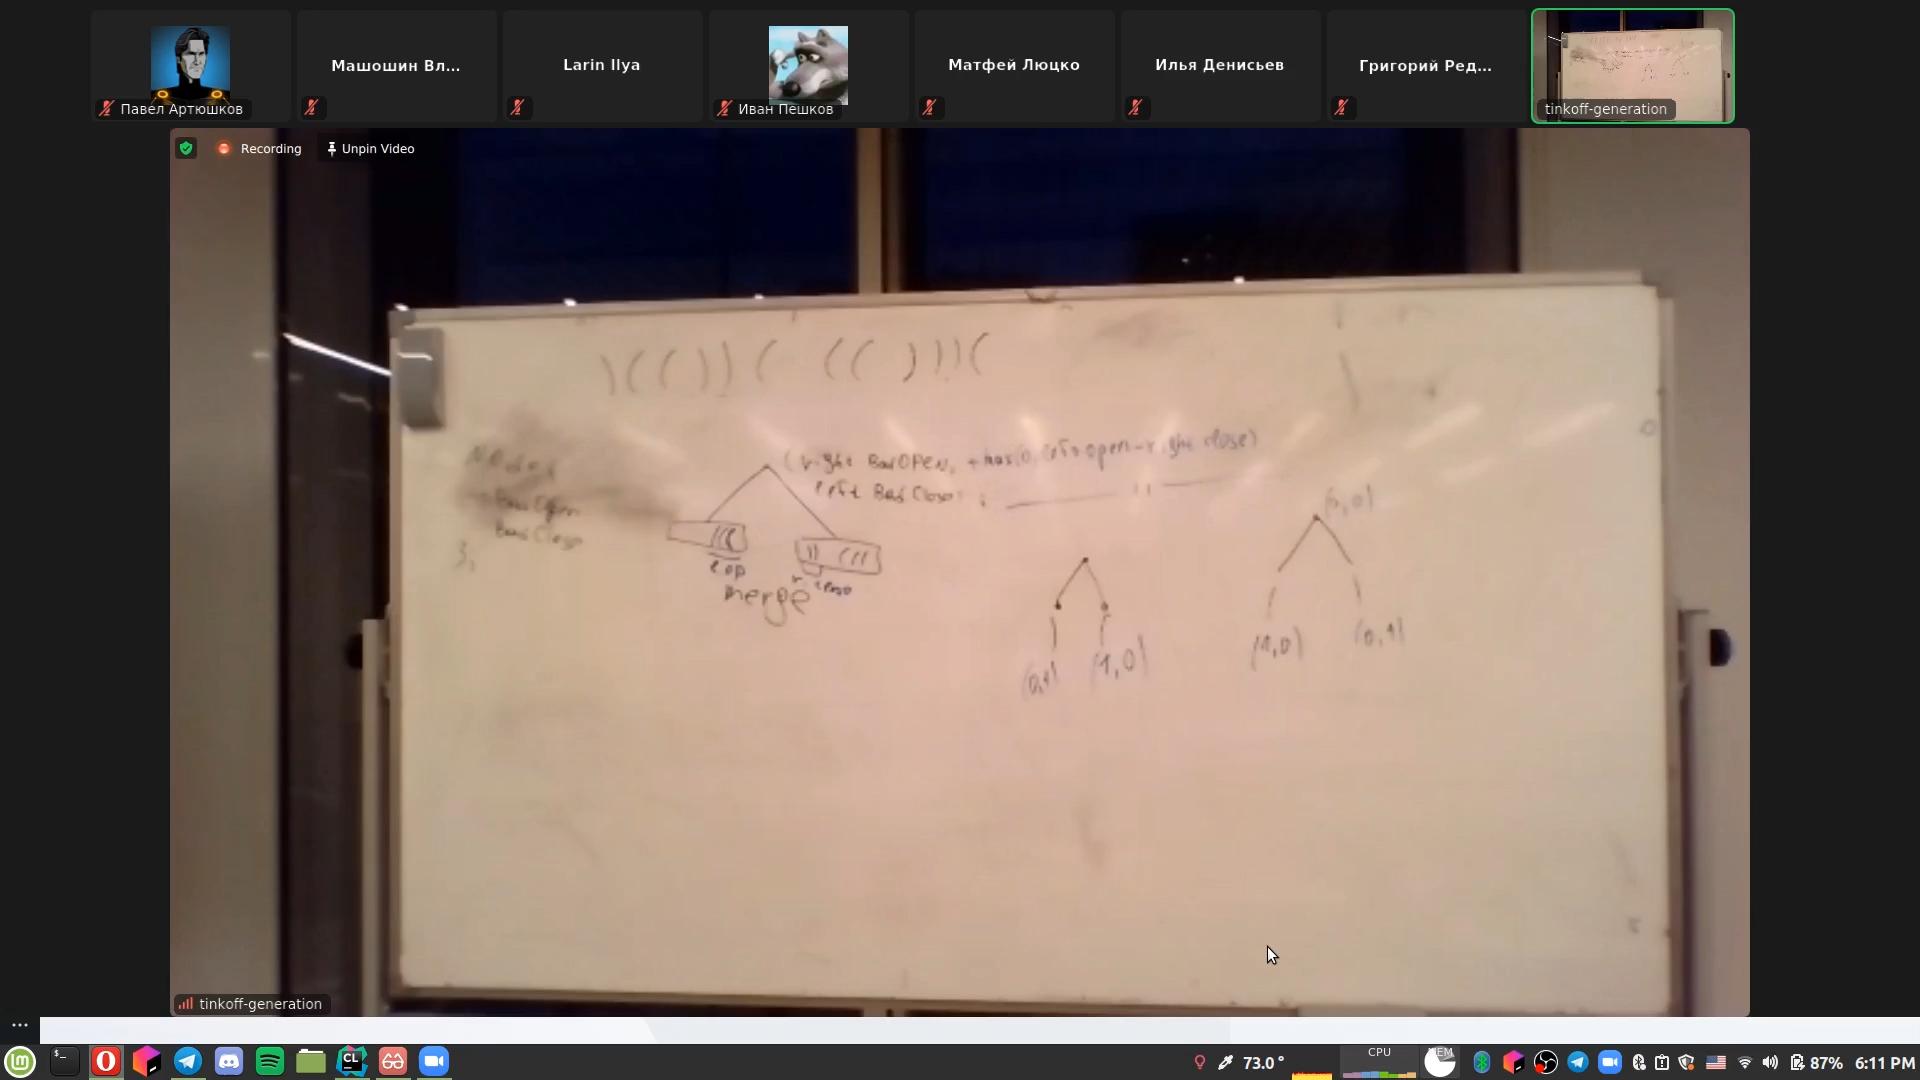 Павел Артюшков
Машошин Вл...
Larin Ilya
Иван Пешков
Матфей Люцко
Илья Денисьев
Григорий Ред...
tinkoff-generation
Recording
Unpin Video
) ( ( ) ) ( ( ( ) ) ) (
(right BadOPEN, + max(0, left open - right close)
left BadClose
Bad Open
Bad Close
};
merge
(0,0)
(0,1) (1,0)
(1,0) (0,1)
tinkoff-generation
CL
CPU
MEM
73.0°
87%
6:11 PM